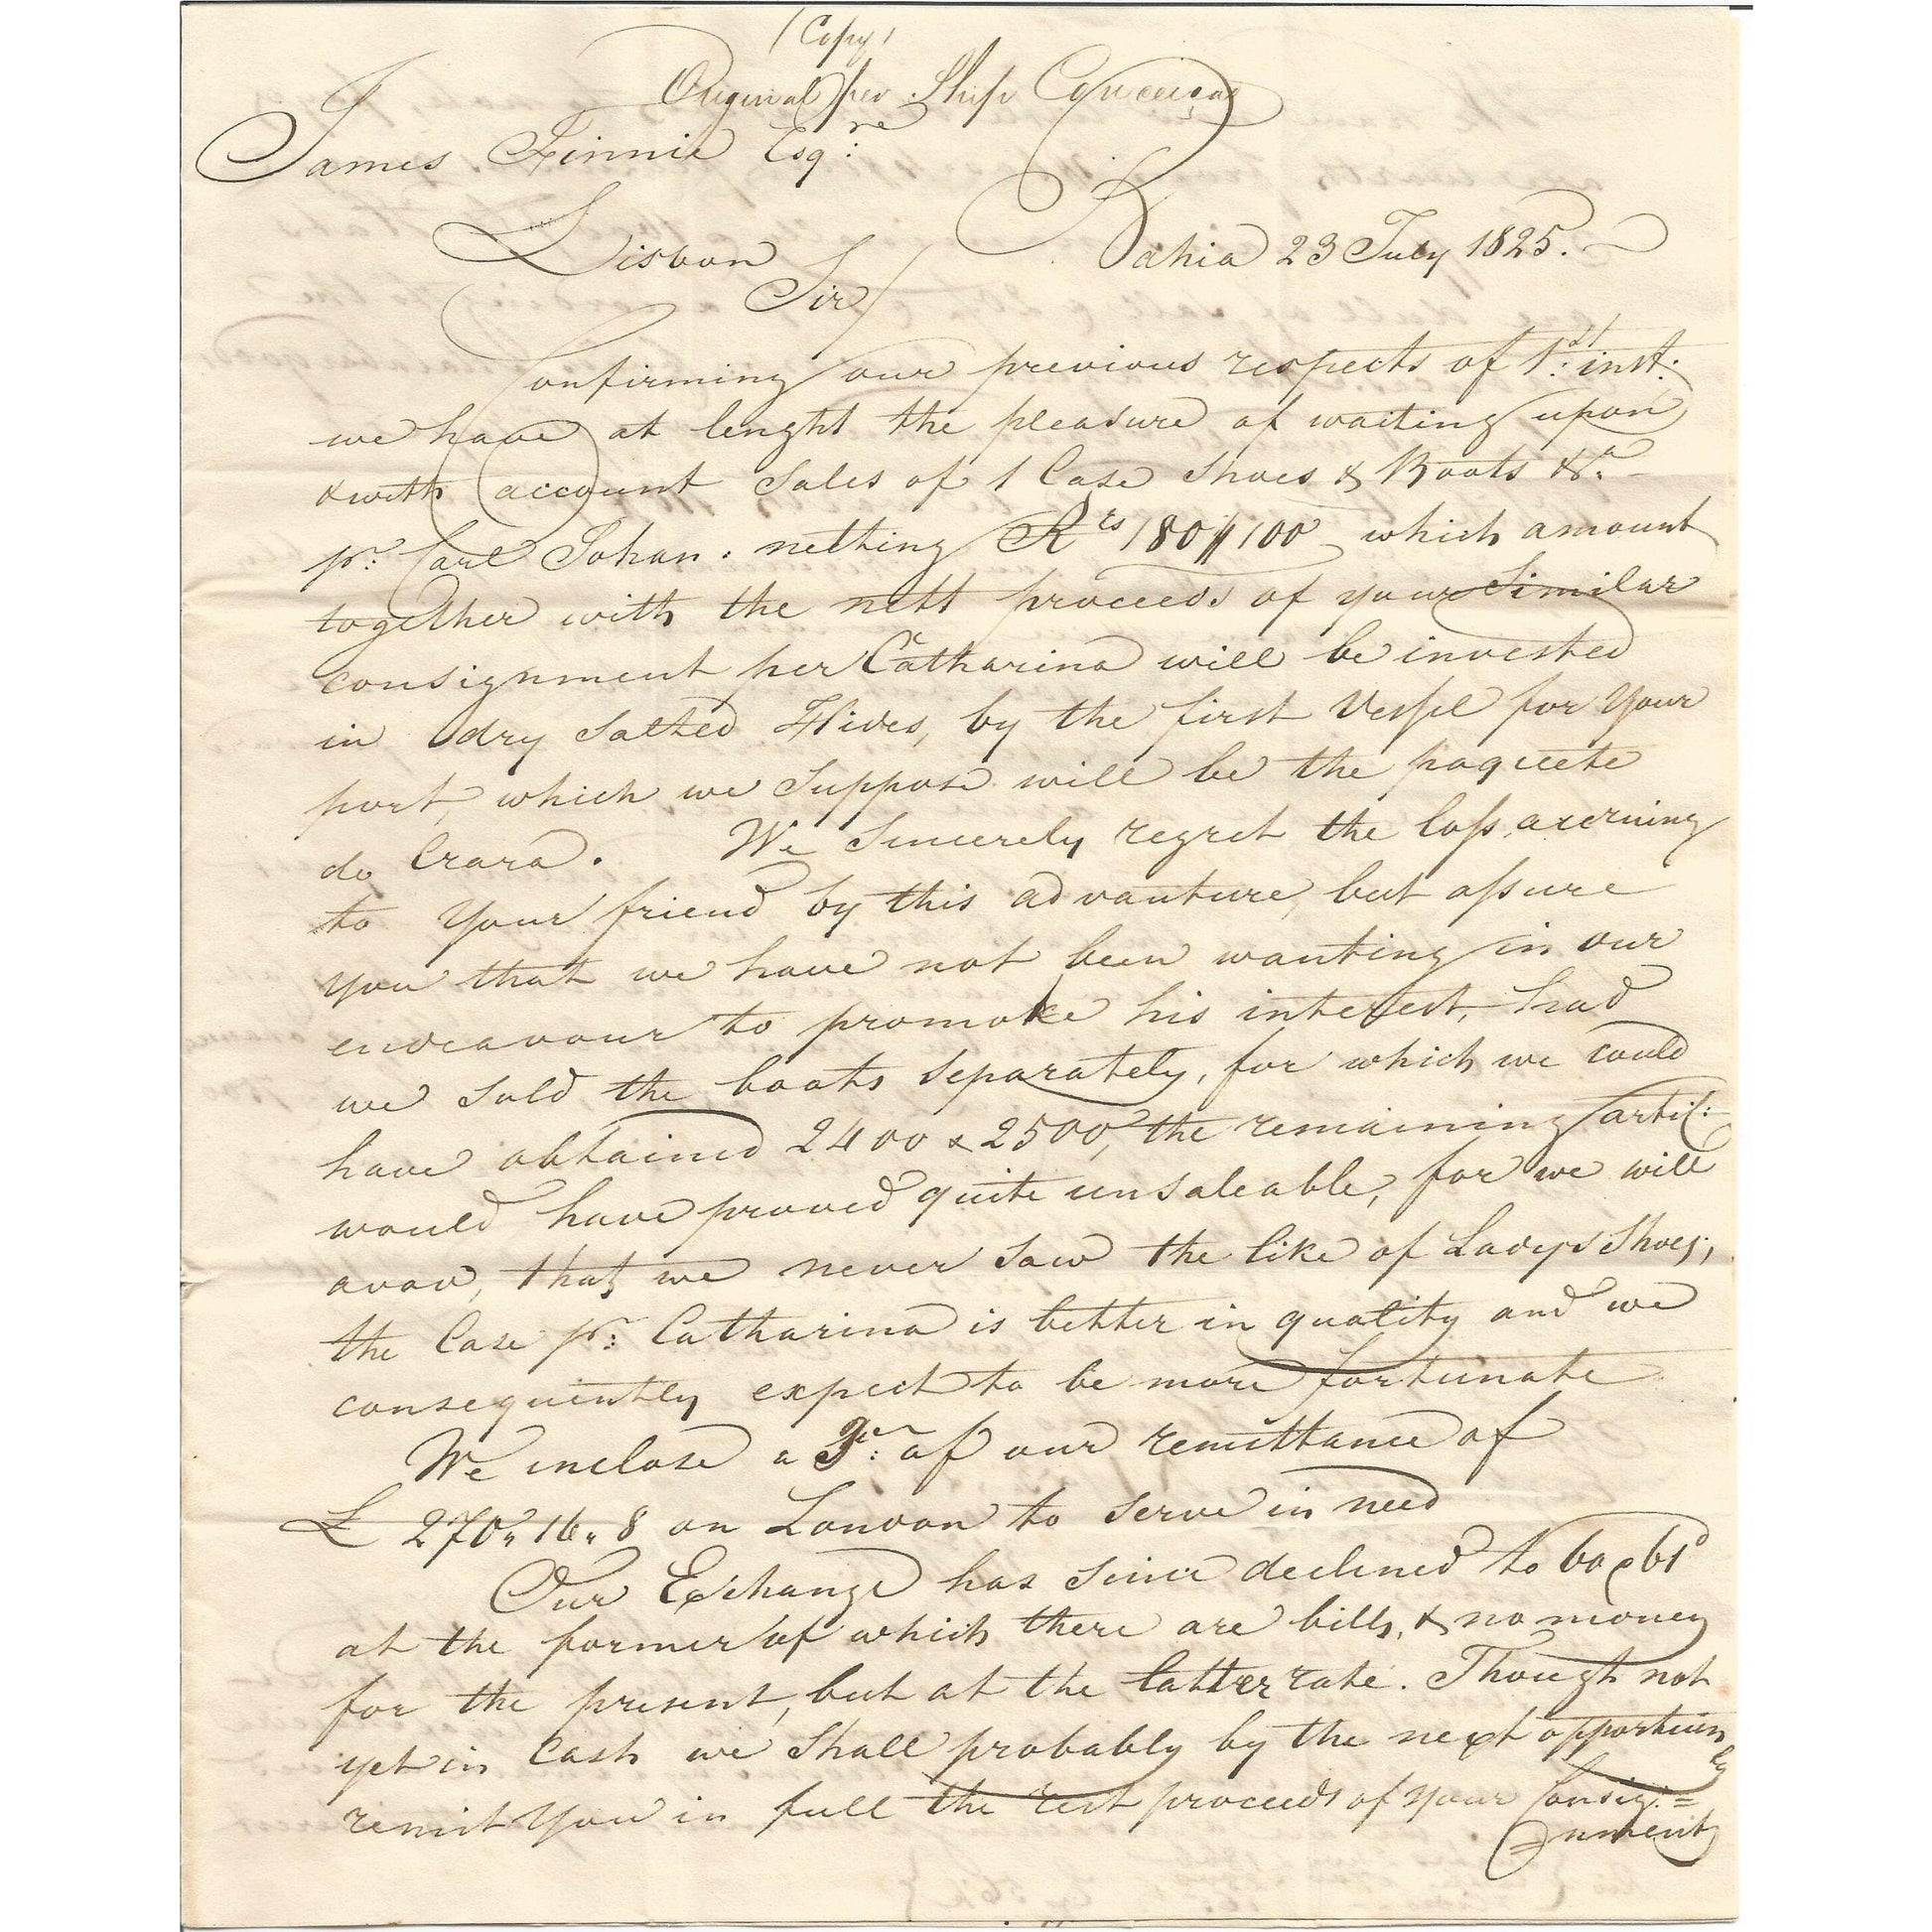 (Copy)
Original per Ship Conceiçaõ
James Finnie Esqre:
Bahia 23 July 1825.
Lisbon
Sir/
Confirming our previous respects of 1st: inst:
we have at lenght the pleasure of waiting upon
& with account Sales of 1 Case Shoes & Boots &ca:
pr: Carl Johan: netting Rrs 180//100 which amount
together with the nett proceeds of your Similar
consignment per Catharina will be invested
in dry Salted Hides, by the first Vessel for Your
port, which we Suppose will be the paquete
do Ceara. We Sincerely regret the loss accruing
to Your friend by this advanture, but assure
you that we have not been wanting in our
endeavour to promote his interest, had
we Sold the boots Separately, for which we could
have obtained 2400 a 2500, the remaining artic:
would have proved quite unsaleable, for we will
avow, that we never Saw the like of Ladys Shoes;
the Case pr: Catharina is better in quality and we
consequently expect to be more fortunate
We inclose a of our remittance of
£ 270„16„8 on London to Serve in need
Our Exchange has Since declined to 60 a 61d
at the former of which there are bills, & no money
for the present, but at the latter rate. Though not
yet in Cash we Shall probably by the next opportunity
remit You in full the rest proceeds of Your Consig:=
nment